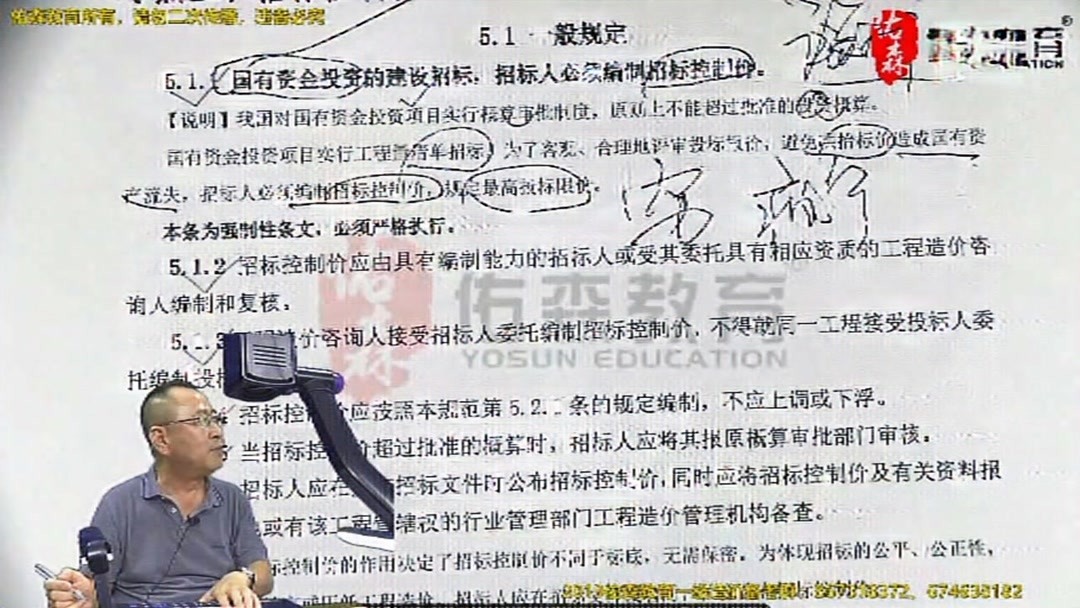 佑森教育所有，请勿二次传播，违者必究
5.1 一般规定
佑森 教育® EDUCATION
5.1.1 国有资金投资的建设招标，招标人必须编制招标控制价。
【说明】我国对国有资金投资项目实行概算审批制度，原则上不能超过批准的投资概算。
国有资金投资项目实行工程量清单招标，为了客观、合理地评审投标报价，避免哄抬标价造成国有资
产流失，招标人必须编制招标控制价，规定最高投标限价。
本条为强制性条文，必须严格执行。
5.1.2 招标控制价应由具有编制能力的招标人或受其委托具有相应资质的工程造价咨
询人编制和复核。
佑森教育
YOSUN EDUCATION
5.1.3 工程造价咨询人接受招标人委托编制招标控制价，不得就同一工程接受投标人委
托编制投标
招标控制价应按照本规范第5.2.1条的规定编制，不应上调或下浮。
当招标控制价超过批准的概算时，招标人应将其报原概算审批部门审核。
招标人应在招标文件时公布招标控制价，同时应将招标控制价及有关资料报
或有该工程管辖权的行业管理部门工程造价管理机构备查。
标控制价的作用决定了招标控制价不同于标底，无需保密。为体现招标的公平、公正性，
招标人应在